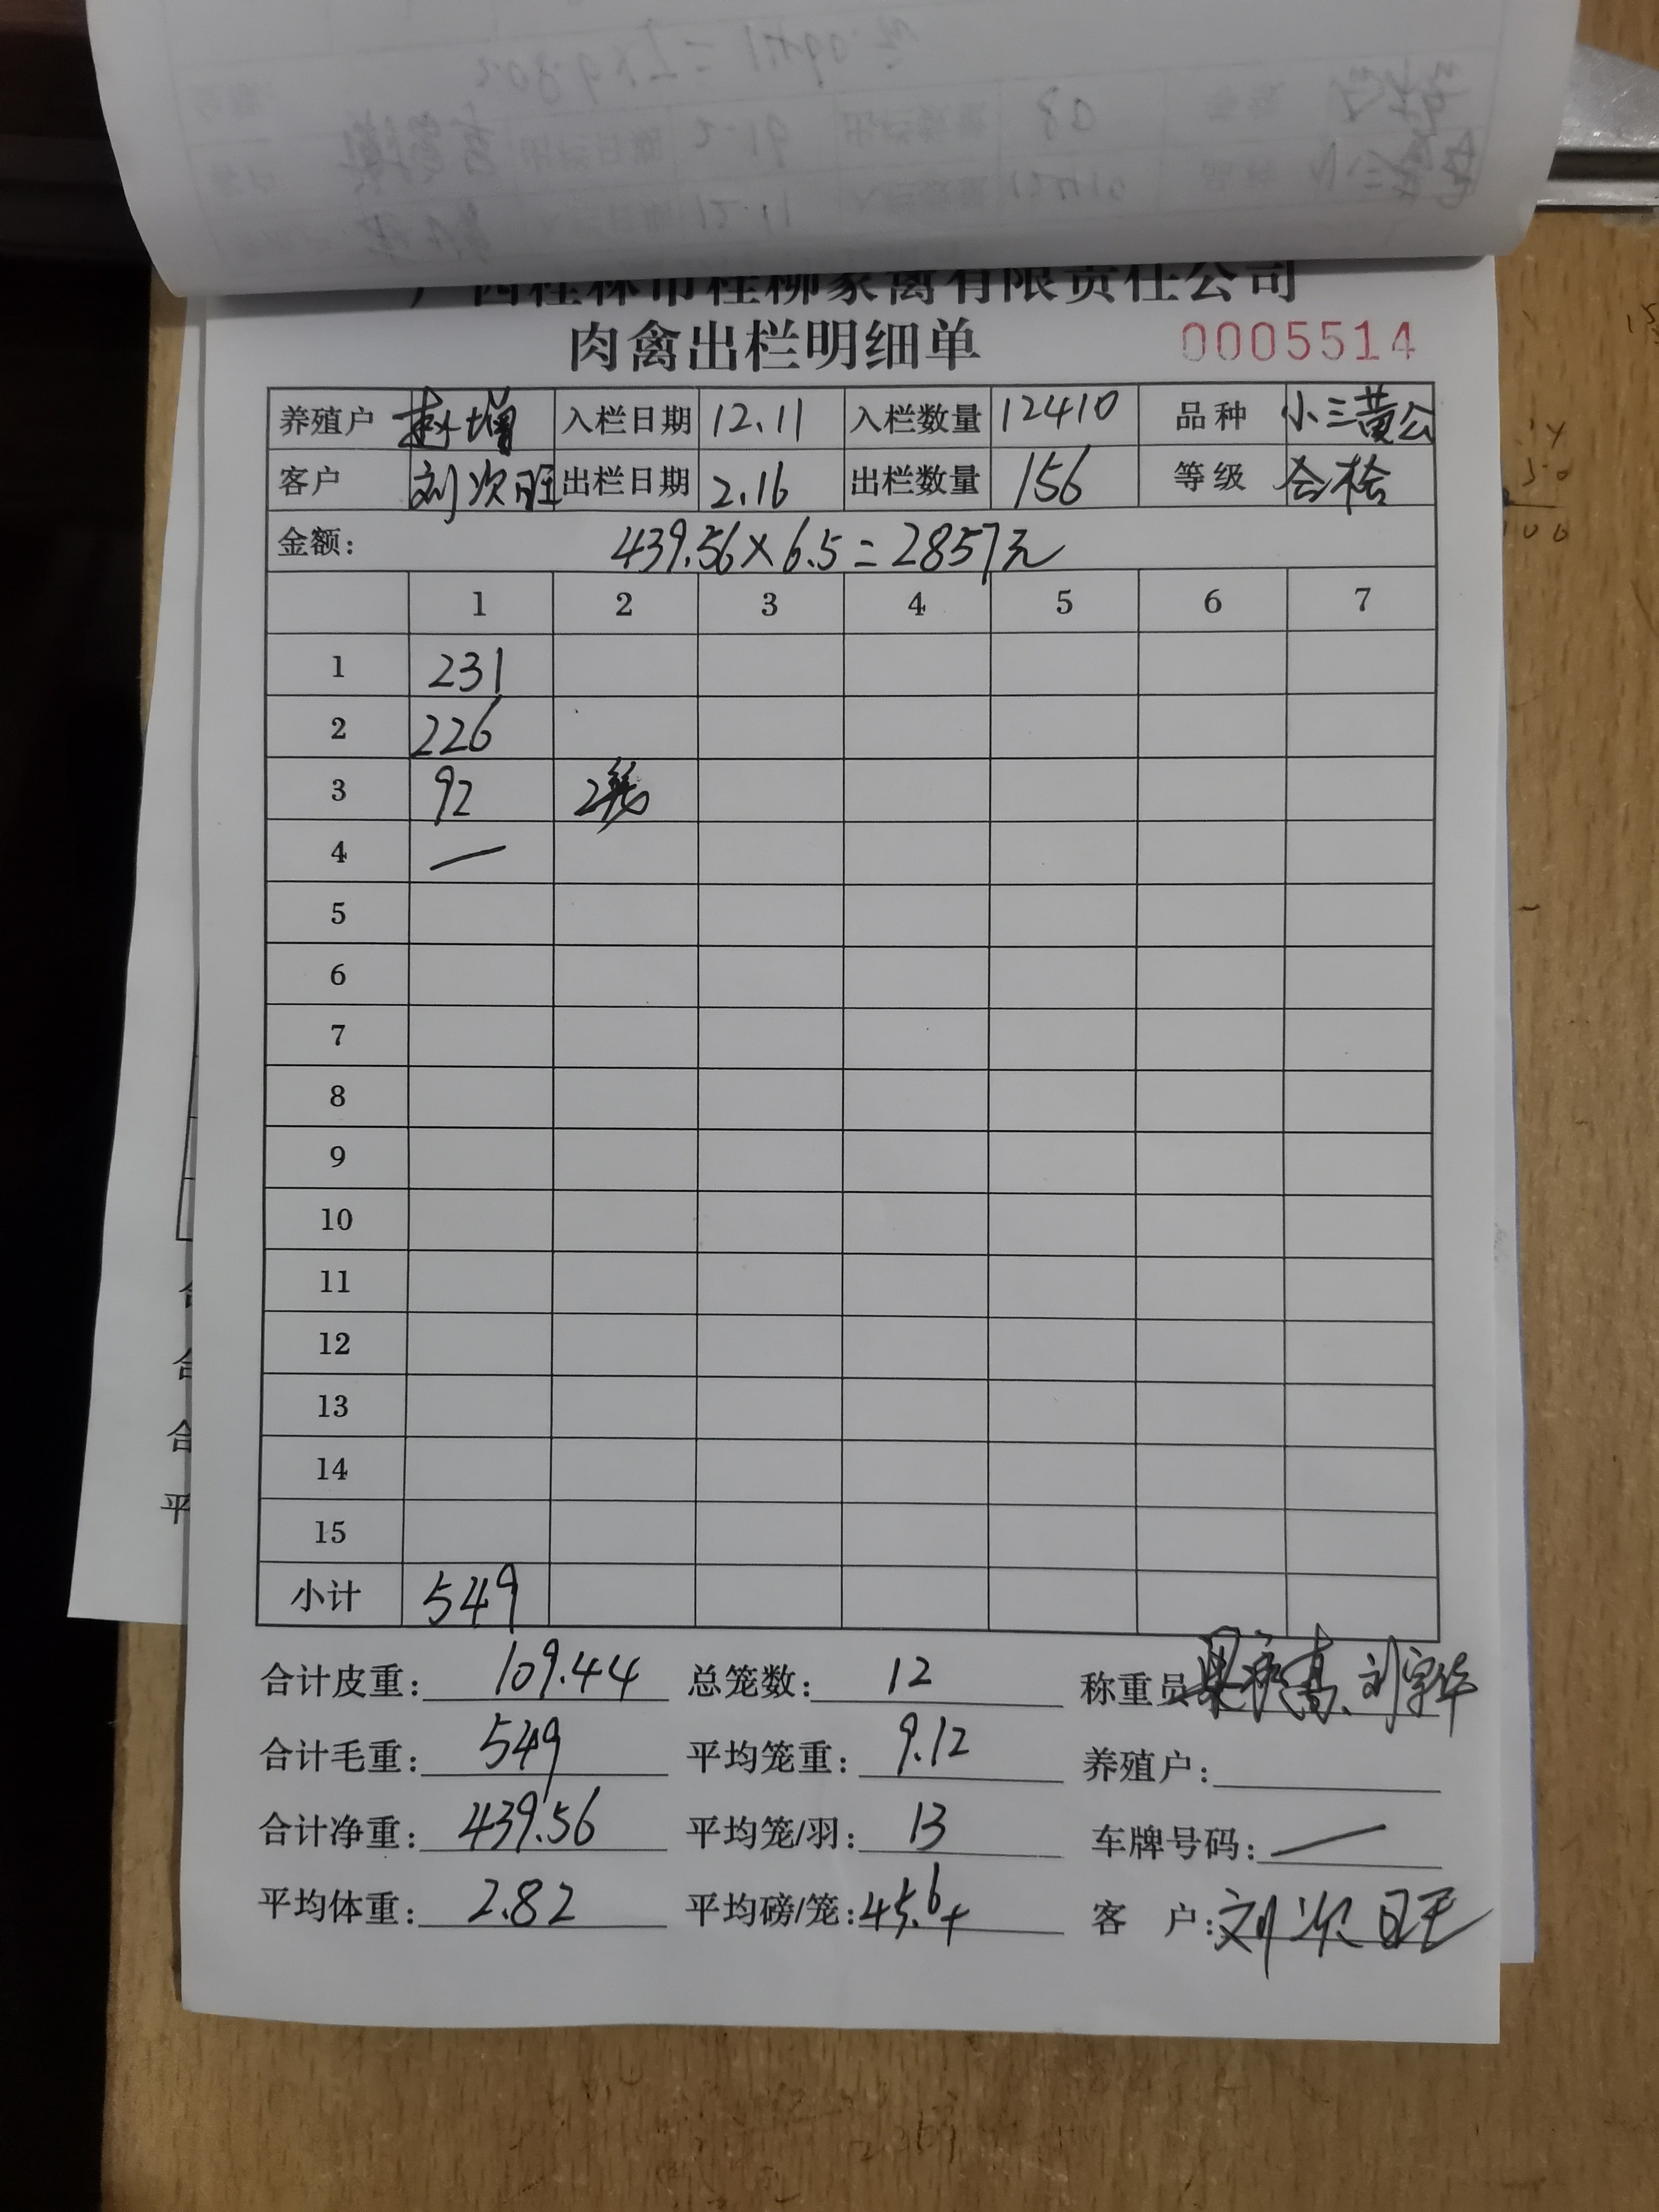 广西桂林市桂柳家禽有限责任公司
肉禽出栏明细单 0005514
养殖户 入栏日期 12.11 入栏数量 12410 品种 小三黄公
客户 刘次旺 出栏日期 2.16 出栏数量 156 等级 合格
金额: 439.56×6.5=2857元
1 2 3 4 5 6 7
1 231
2 226
3 92
4 —
5
6
7
8
9
10
11
12
13
14
15
小计 549
合计皮重: 109.44 总笼数: 12 称重员 刘宇华
合计毛重: 549 平均笼重: 9.12 养殖户:
合计净重: 439.56 平均笼/羽: 13 车牌号码: —
平均体重: 2.82 平均磅/笼: 客 户: 刘次旺